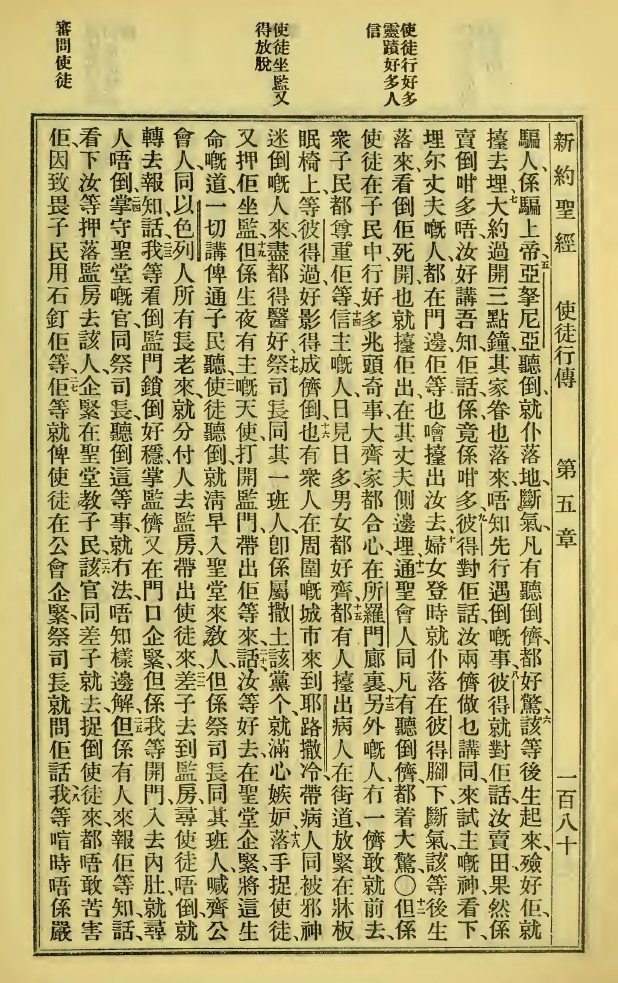 使徒行好多
靈蹟好多人
信
使徒坐監又
得放脫
審問使徒
新約聖經 使徒行傳 第五章 一百八十
騙人、係騙上帝、五亞拏尼亞聽倒、就仆落地斷氣、凡有聽倒儕都好驚、六該等後生起來、殮好佢、就
擡去埋、七大約過開三點鐘、其家眷也落來、唔知先行遇倒嘅事、八彼得就對佢話、汝賣田果然係
賣倒咁多唔、汝好講吾知、佢話、係、竟係咁多、九彼得對佢話、汝兩儕做乜講同來試主嘅神、看下、
埋尔丈夫嘅人都在門邊、佢等也噲擡出汝去、十婦女登時就仆落在彼得腳下斷氣、該等後生
落來、看倒佢死開、也就擡佢出、在其丈夫側邊埋、十一通聖會人、同凡有聽倒儕都着大驚〇十二但係
使徒在子民中行好多兆頭奇事、大齊家都合心在所羅門廊裏、十三另外嘅人冇一儕敢就前去、
衆子民都尊重佢等、十四信主嘅人、日見日多、男女都好齊、十五都有人擡出病人在街道、放緊在牀板
眠椅上、等彼得過、好影得成儕倒、十六也有衆人在周圍嘅城市來到耶路撒冷、帶病人同被邪神
迷倒嘅人來、盡都得醫好、十七祭司長同其一班人、卽係屬撒土該黨个、就滿心嫉妒、十八落手捉使徒、
又押佢坐監、十九但係生夜有主嘅天使打開監門、帶出佢等來、話、二十汝等好去在聖堂企緊、將這生
命嘅道、一切講俾通子民聽、二一使徒聽倒、就清早入聖堂來教人、但係祭司長同其班人、喊齊公
會人、同以色列人所有長老來、就分付人去監房、帶出使徒來、二二差子去到監房、尋使徒唔倒、就
轉去報知、話、二三我等看倒監門鎖倒好穩、掌監儕又在門口企緊、但係我等開門、入去內肚、就尋
人唔倒、二四掌守聖堂嘅官、同祭司長、聽倒這等事、就冇法、唔知樣邊解、二五但係有人來報佢等知、話、
看下、汝等押落監房去該人、企緊在聖堂教子民、二六該官同差子就去、捉倒使徒來、都唔敢苦害
佢、因致畏子民用石釘佢等、二七佢等就俾使徒在公會企緊、祭司長就問佢、話、二八我等喧時唔係嚴